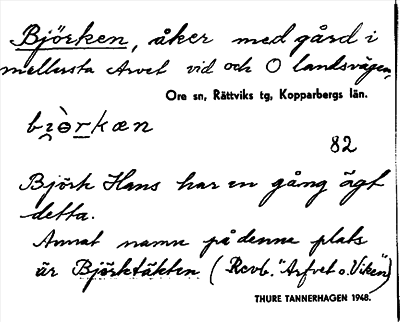 Björken, åker med gård i
mellersta Arvet vid och O landsvägen,
Ore sn, Rättviks tg, Kopparbergs län.
bi̯ɵ̀rkæn
82
Björk Hans har en gång ägt
detta.
Annat namn på denna plats
är Björktäkten (Revb. "Arfvet o. Viken")
THURE TANNERHAGEN 1948.